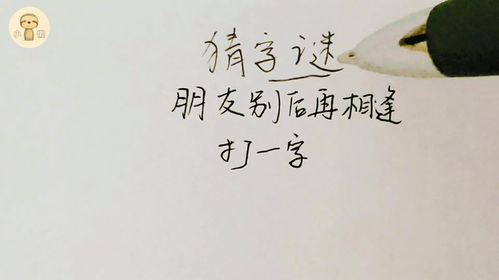 猜字谜
朋友别后再相逢
打一字